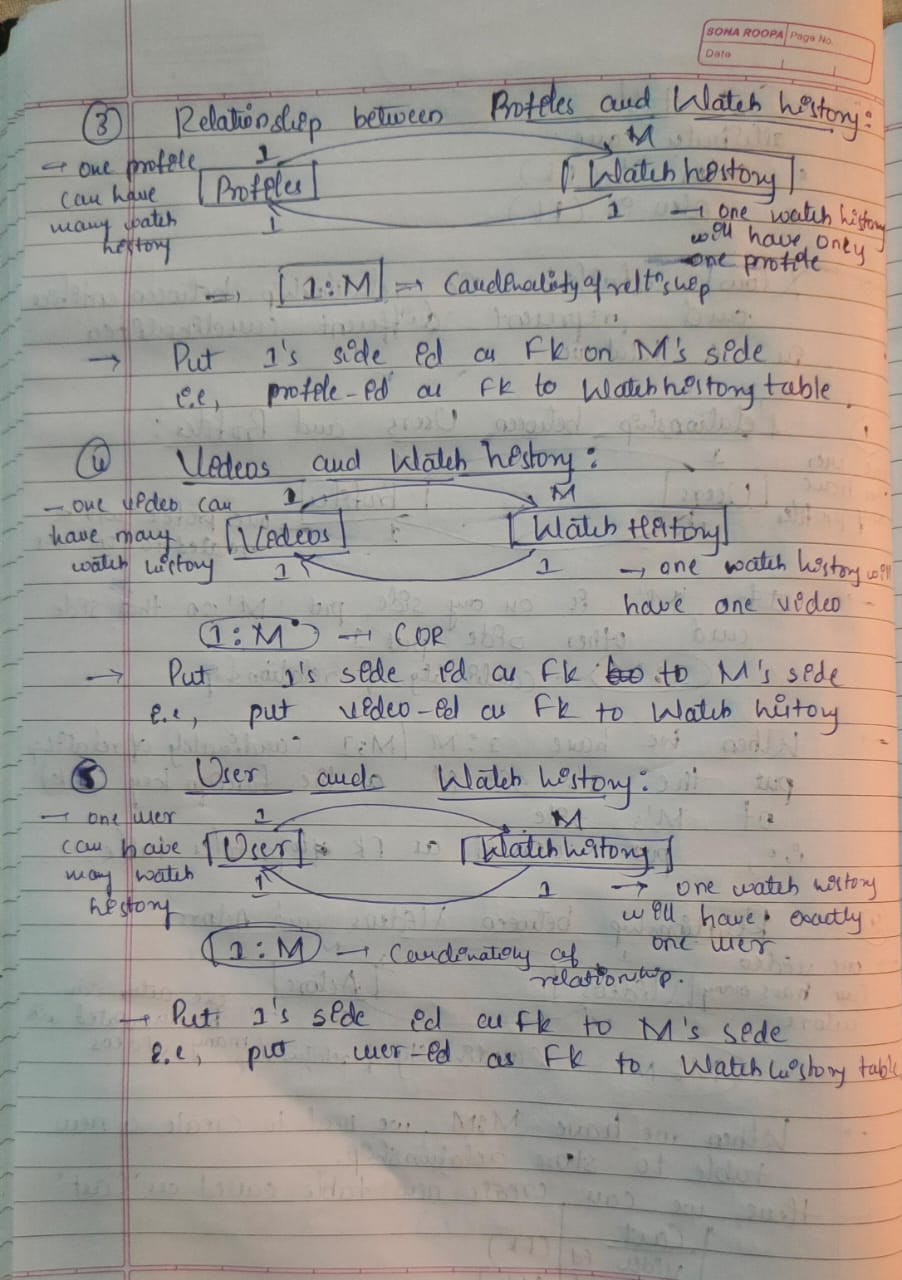 SONA ROOPA Page No.
Date
③ Relationship between Profiles and Watch history:
→ one profile can have many watch history
1 M
[Profiles] [Watch history]
1 1
→ one watch history will have only one profile
→ [1:M] ⇒ Cardinality of reltⁿship
→ Put 1's side id as FK on M's side
i.e, profile-id as FK to Watch history table.
④ Videos and Watch history:
→ one video can have many watch history
1 M
[Videos] [Watch History]
1 1
→ one watch history will have one video
1:M → COR
→ Put 1's side id as FK to M's side
i.e, put video-id as FK to Watch history
⑤ User and Watch history:
→ one user can have many watch history
1 M
[User] [Watch history]
1 1
→ one watch history will have exactly one user
1:M → Cardinality of relationship.
→ Put 1's side id as FK to M's side
i.e, put user-id as FK to Watch history table